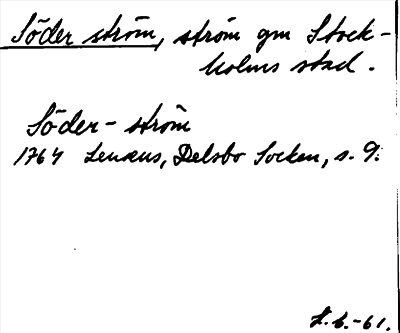 Söder ström, ström gm Stock-
holms stad.
Söder-ström
1764 Lenæus, Delsbo Socken, s. 9.
L.b.-61.